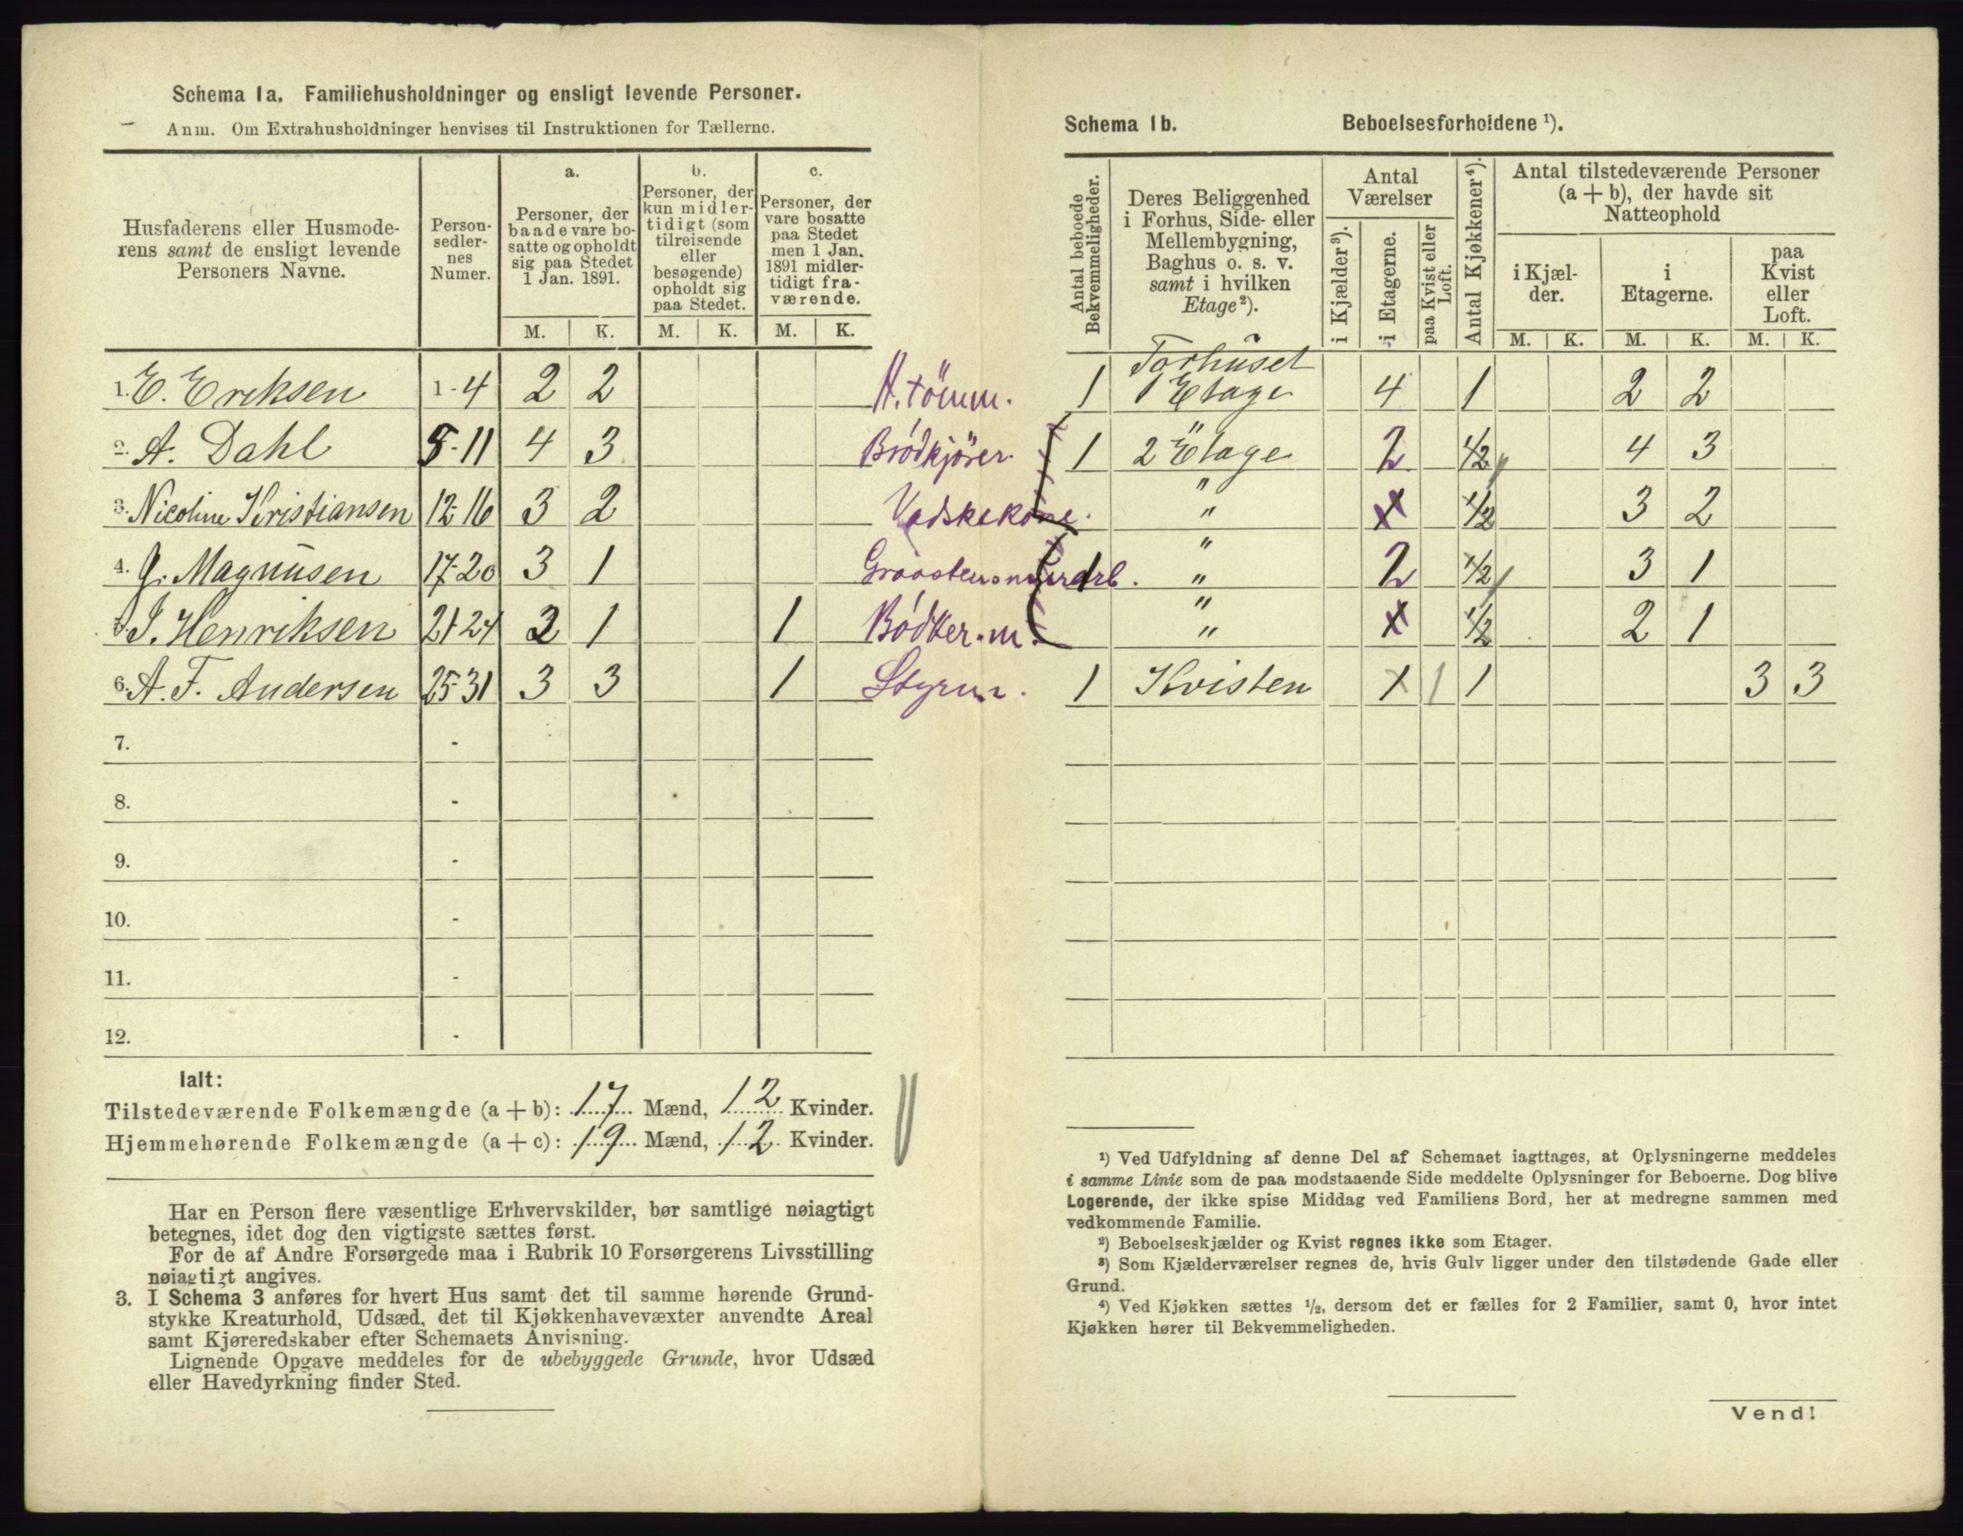 Schema 1a. Familiehusholdninger og ensligt levende Personer.
Anm. Om Extrahusholdninger henvises til Instruktionen for Tællerne.
Husfaderens eller Husmoderens samt de ensligt levende Personers Navne.
Personsedlernes Numer.
a.
Personer, der baade vare bosatte og opholdt sig paa Stedet 1 Jan. 1891.
b.
Personer, der kun midlertidigt (som tilreisende eller besøgende) opholdt sig paa Stedet.
c.
Personer, der vare bosatte paa Stedet men 1 Jan. 1891 midlertidigt fraværende.
M. K. M. K. M. K.
1. E. Eriksen 1-4 2 2 H. tömm.
2. A. Dahl 5-11 4 3 Brödkjörer.
3. Nicoline Kristiansen 12-16 3 2 Vadskekone.
4. G. Magnusen 17-20 3 1
5. J. Henriksen 21-24 2 1 1 Bödker.m.
6. A. F. Andersen 25-31 3 3 1
7. -
8. -
9. -
10. -
11. -
12. -
Ialt:
Tilstedeværende Folkemængde (a + b): 17 Mænd, 12 Kvinder.
Hjemmehørende Folkemængde (a + c): 19 Mænd, 12 Kvinder.
Har en Person flere væsentlige Erhvervskilder, bør samtlige nøiagtigt
betegnes, idet dog den vigtigste sættes først.
For de af Andre Forsørgede maa i Rubrik 10 Forsørgerens Livsstilling
nøiagtigt angives.
3. I Schema 3 anføres for hvert Hus samt det til samme hørende Grund-
stykke Kreaturhold, Udsæd, det til Kjøkkenhavevæxter anvendte Areal
samt Kjøreredskaber efter Schemaets Anvisning.
Lignende Opgave meddeles for de ubebyggede Grunde, hvor Udsæd
eller Havedyrkning finder Sted.
Schema 1b. Beboelsesforholdene ¹).
Antal beboede Bekvemmeligheder.
Deres Beliggenhed i Forhus, Side- eller Mellembygning, Baghus o. s. v. samt i hvilken Etage²).
Antal Værelser
i Kjælder³).
i Etagerne.
paa Kvist eller Loft.
Antal Kjøkkener⁴).
Antal tilstedeværende Personer (a + b), der havde sit Natteophold
i Kjælder.
i Etagerne.
paa Kvist eller Loft.
M. K. M. K. M. K.
1 Forhuset 1 Etage 4 1 2 2
1 2 Etage 2 1/2 4 3
" x 1/2 3 2
1 " " 2 1/2 3 1
" " x 1/2 2 1
1 Kvisten 1 1 1 3 3
¹) Ved Udfyldning af denne Del af Schemaet iagttages, at Oplysningerne meddeles
i samme Linie som de paa modstaaende Side meddelte Oplysninger for Beboerne. Dog blive
Logerende, der ikke spise Middag ved Familiens Bord, her at medregne sammen med
vedkommende Familie.
²) Beboelseskjælder og Kvist regnes ikke som Etager.
³) Som Kjælderværelser regnes de, hvis Gulv ligger under den tilstødende Gade eller
Grund.
⁴) Ved Kjøkken sættes ¹/₂, dersom det er fælles for 2 Familier, samt 0, hvor intet
Kjøkken hører til Bekvemmeligheden.
Vend!